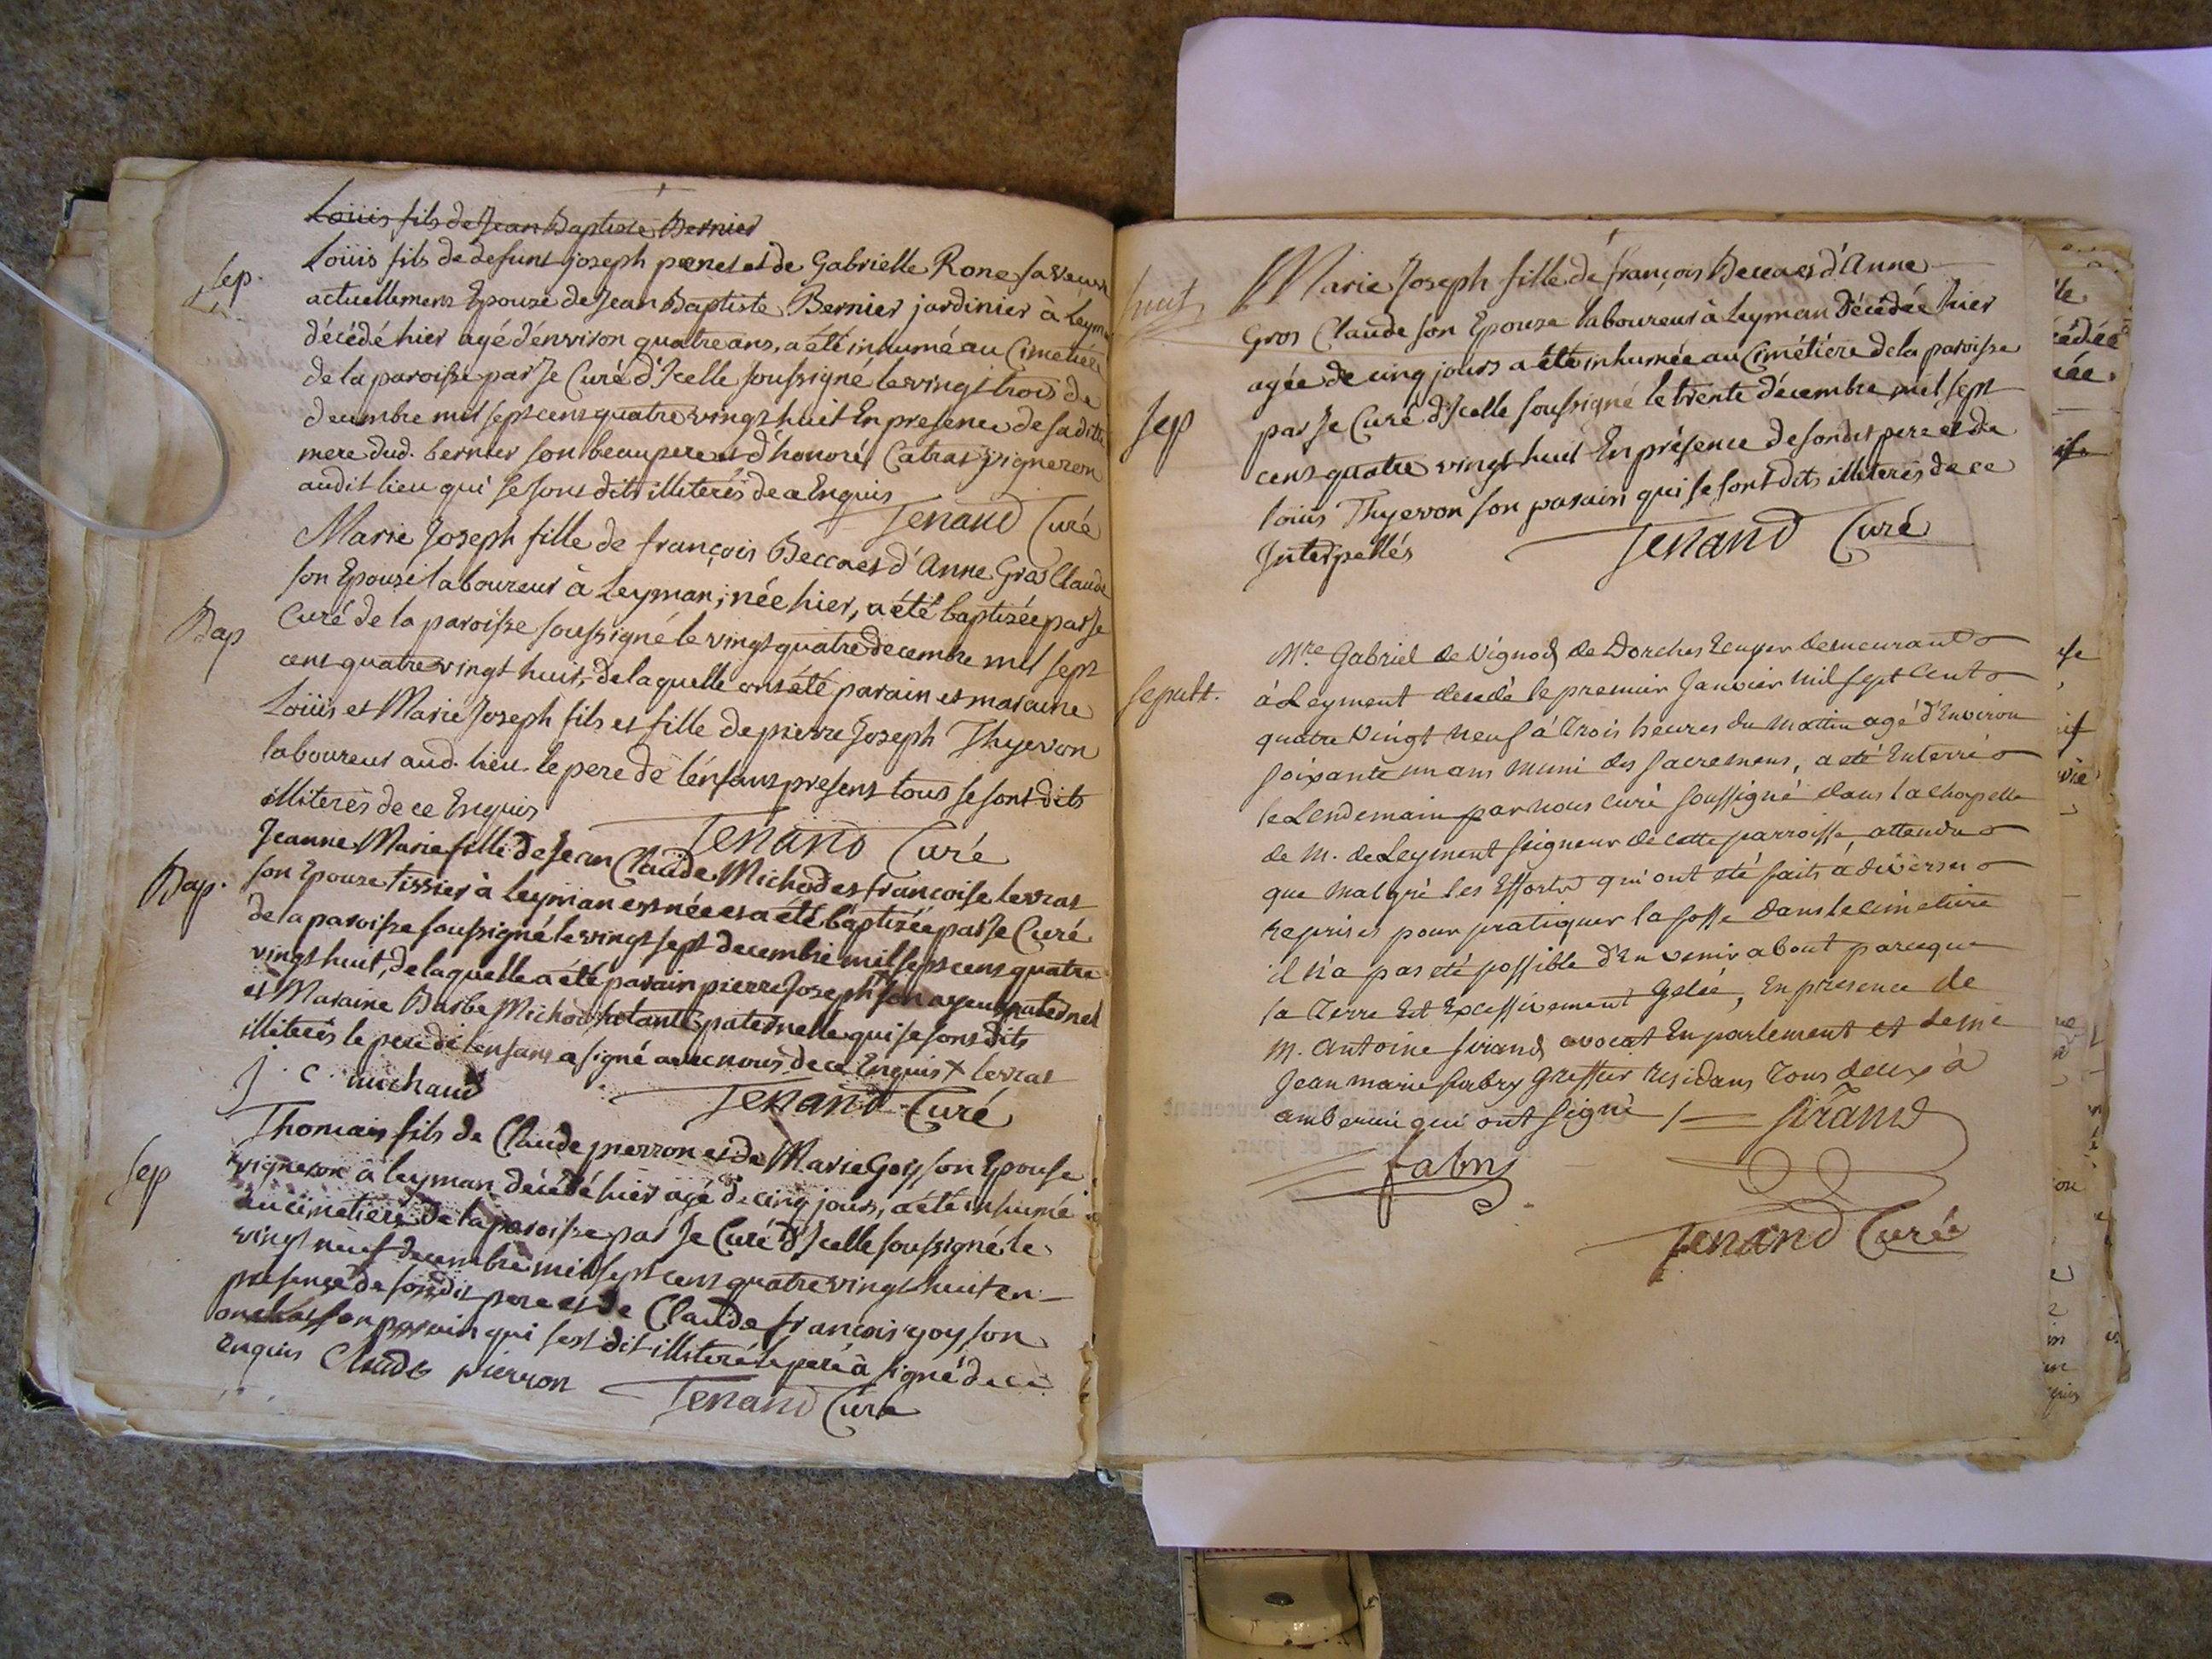 Loüis fils de Jean Baptiste Bernier
Sep.
Loüis fils de defunt joseph et de Gabrielle Rone sa veuve
actuellement Epouze de Jean Baptiste Bernier jardinier à Leyman
décédé hier agé d'environ quatre ans, a été inhumé au Cimetiére
de la paroisse par Je Curé d'Jcelle soussigné le vingt trois de
decembre mil sept cens quatre vingt huit En presence de sa ditte
mere dud. bernier son beau pere et d'honoré Catras vigneron
audit lieu qui se sont dits illiterés de ce Enquis
Tenand Curé
Bap
Marie Joseph fille de françois Beccaes d'Anne Gros Claude
son Epouze laboureur à Leyman; née hier, a été baptizée par Je
Curé de la paroisse soussigné le vingt quatre decembre mil sept
cens quatre vingt huit, de laquelle ont été parain et maraine
Loüis et Marie Joseph fils et fille de pierre Joseph Thyevon
laboureur aud. lieu. le pere de l'enfant present tous se sont dits
illiterés de ce Enquis
Tenand Curé
Bap.
Jeanne Marie fille de Jean Claude Michod et francoise levrat
son Epouze tissier à leyman est née et a été baptizée par Je Curé
de la paroisse soussigné le vingt sept decembre mil sept cens quatre
vingt huit, de laquelle a été parain pierre Joseph + son ayeul paternel
et Maraine Barbe Michod sa tante paternelle qui se sont dits
illiterés le pere de l'enfant a signé avec nous de ce Enquis + levrat
j. c. michaud
Tenand Curé
Sep
Thomas fils de Claude pierron et de Marie Goy son Epouse
vigneron à leyman décédé hier agé de cinq jours, a été inhumé
au cimetiere de la paroisse par Je Curé d'Jcelle soussigné le
vingt neuf decembre mil sept cens quatre vingt huit en
presence de son dit pere et de Claude françois goy son
oncle et son parain qui s'est dit illiteré le pere à signé de ce
enquis Claude pierron
Tenand Curé
huit
Marie Joseph fille de françois Beccaes d'Anne
Gros Claude son Epouze laboureur à Leyman Décédée hier
agée de cinq jours a été inhumée au Cimétiére de la paroisse
Sep
par Je Curé d'Jcelle soussigné le trente décembre mil sept
cens quatre vingt huit En présence de son dit pere et de
loüis Thyevon son parain qui se sont dits illiterés de ce
Jnterpellés
Tenand Curé
Sepult.
Mre Gabriel de Vignod de Dorches Ecuyer demeurant
à Leyment decedé le premier Janvier mil sept Cent
quatre vingt neuf à Trois heures du Mattin agé d'Environ
soixante un ans muni des sacremens, a eté Enterré
le Lendemain par nous curé soussigné dans la chapelle
de M. de Leyment seigneur de cette parroisse, attendu
que malgré les Efforts qui ont eté faits à diverses
reprises pour pratiquer la fosse dans le cimetiere
il n'a pas eté possible d'En venir about parceque
la Terre Est Excessivement Gelée, En presence de
M. Antoine sirand avocat En parlement et de me
Jean marie fabry Greffier residans Tous deux à
amberieu qui ont signé
Sirand
fabry
Tenand Curé